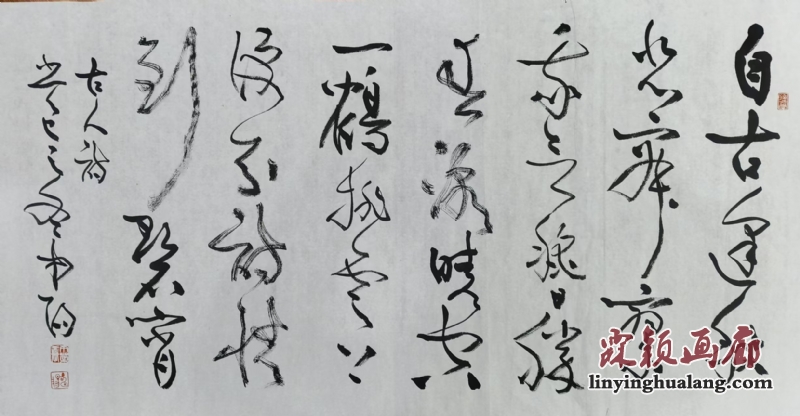 自古逢秋
悲寂寥
我言秋日勝
春潮晴空
一鶴排雲上
便引詩情
到碧霄
古人詩
癸巳之冬
霖颖画廊
linyinghualang.com